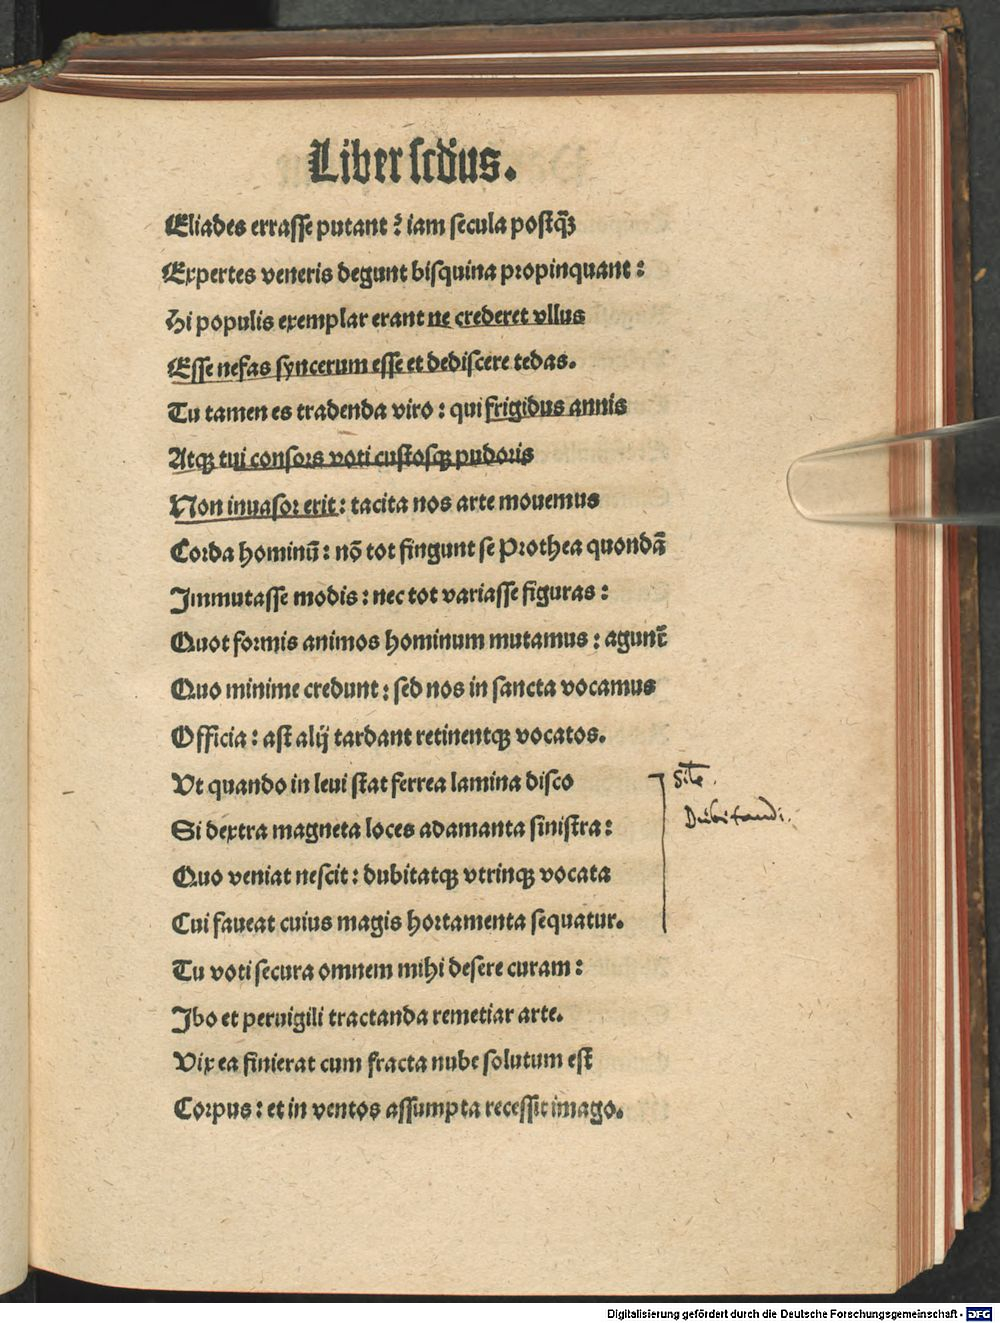 Liber scd̄us.
Eliades errasse putant ⁊̄ iam secula postq̄ꝫ
Expertes veneris degunt bisquina propinquant :
Hi populis exemplar erant ne crederet vllus
Esse nefas syncerum esse et dediscere tedas.
Tu tamen es tradenda viro : qui frigidus annis
Atqꝫ tui consors voti custosqꝫ pudoris
Non inuasor erit : tacita nos arte mouemus
Corda hominū : nō tot fingunt se Prothea quondā
Immutasse modis : nec tot variasse figuras :
Quot formis animos hominum mutamus : agunt᷑
Quo minime credunt : sed nos in sancta vocamus
Officia : ast alij tardant retinentqꝫ vocatos.
Vt quando in leui stat ferrea lamina disco
Si dextra magneta loces adamanta sinistra :
Quo veniat nescit : dubitatqꝫ vtrinqꝫ vocata
Cui faueat cuius magis hortamenta sequatur.
Tu voti secura omnem mihi desere curam :
Ibo et peruigili tractanda remetiar arte.
Vix ea finierat cum fracta nube solutum est
Corpus : et in ventos assumpta recessit imago.
Dubitandi.
Digitalisierung gefördert durch die Deutsche Forschungsgemeinschaft - DFG